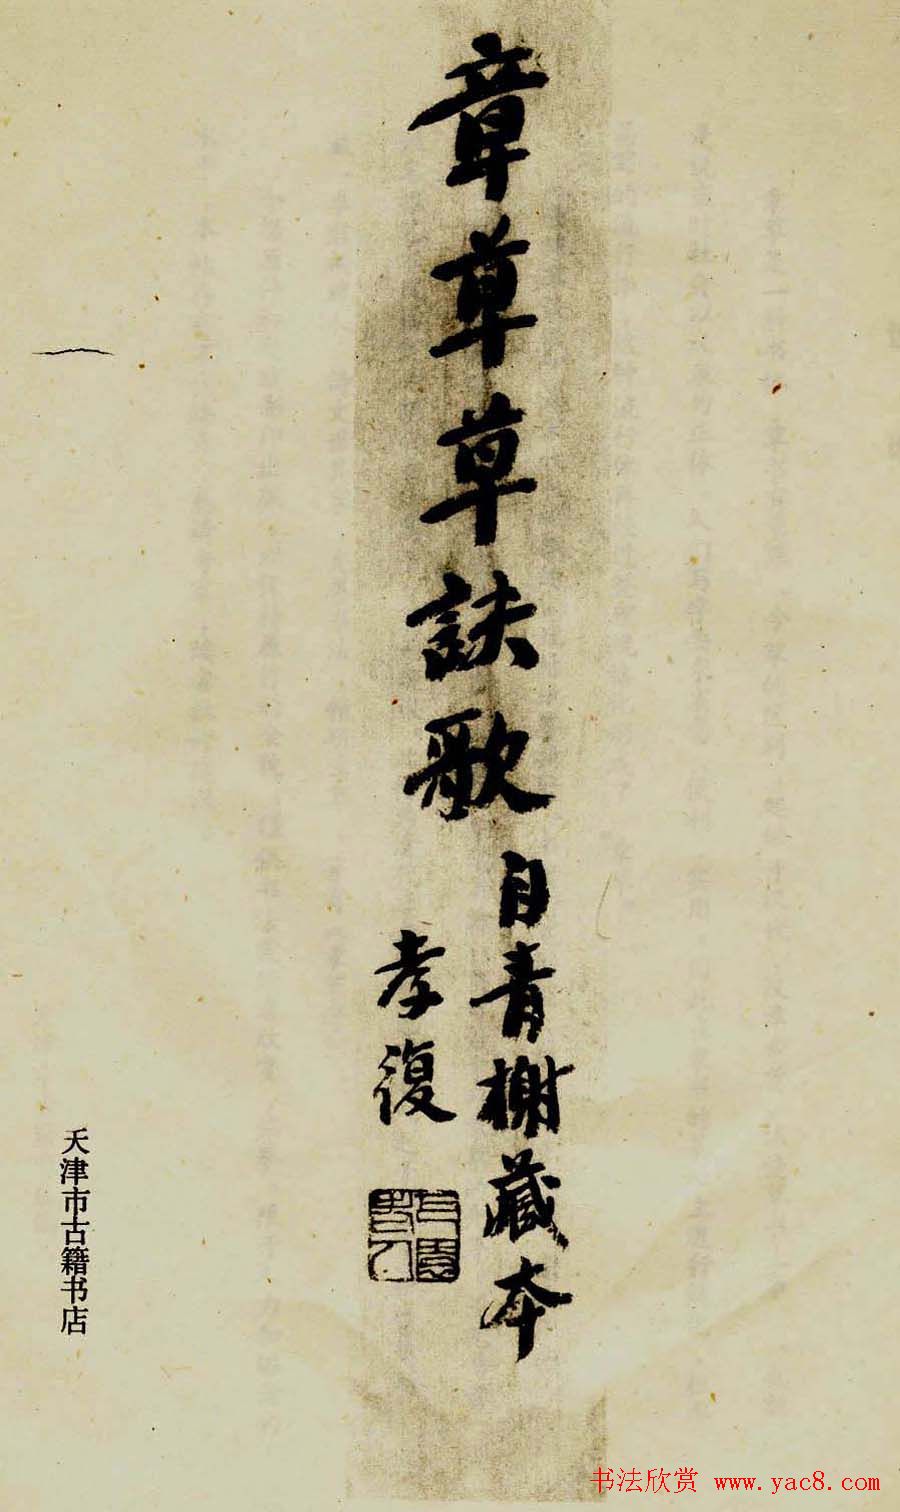 章草草訣歌
自青榭藏本
孝復
天津市古籍书店
书法欣赏 www.yac8.com